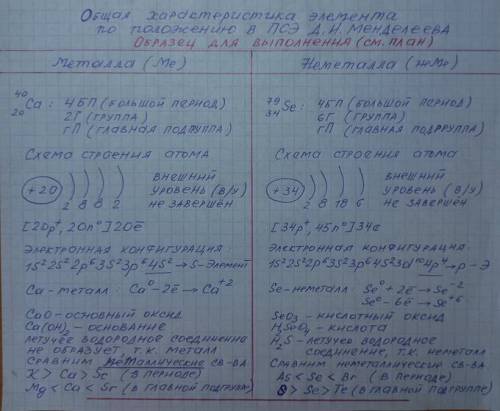 Общая характеристика элемента
по положению в ПСЭ Д. И. Менделеева
Образец для выполнения (см. план)
Металла (Ме)
⁴⁰₂₀Ca : 4БП (большой период)
2Г (группа)
гП (главная подгруппа)
Схема строения атома
+20 ) ) ) ) внешний
2 8 8 2 уровень (в/у)
не завершён
[20p⁺, 20n⁰] 20ē
Электронная конфигурация:
1s²2s²2p⁶3s²3p⁶4s² → s-элемент
Ca-металл: Ca⁰ - 2ē → Ca⁺²
CaO-основный оксид
Ca(OH)₂-основание
летучее водородное соединение
не образует, т.к. металл
Сравним металлические св-ва
K > Ca > Sc (в периоде)
Mg < Ca < Sr (в главной подгруппе)
Неметалла (неМе)
⁷⁹₃₄Se : 4БП (большой период)
6Г (группа)
гП (главная подгруппа)
Схема строения атома
+34 ) ) ) ) внешний
2 8 18 6 уровень (в/у)
не завершён
[34p⁺, 45n⁰] 34ē
Электронная конфигурация:
1s²2s²2p⁶3s²3p⁶4s²3d¹⁰4p⁴ → p-э
Se-неметалл: Se⁰ + 2ē → Se⁻²
Se⁰ - 6ē → Se⁺⁶
SeO₃ - кислотный оксид
H₂SeO₄ - кислота
H₂S - летучее водородное
соединение, т.к. неметалл
Сравним неметаллические св-ва
As < Se < Br (в периоде)
S > Se > Te (в главной подгруппе)